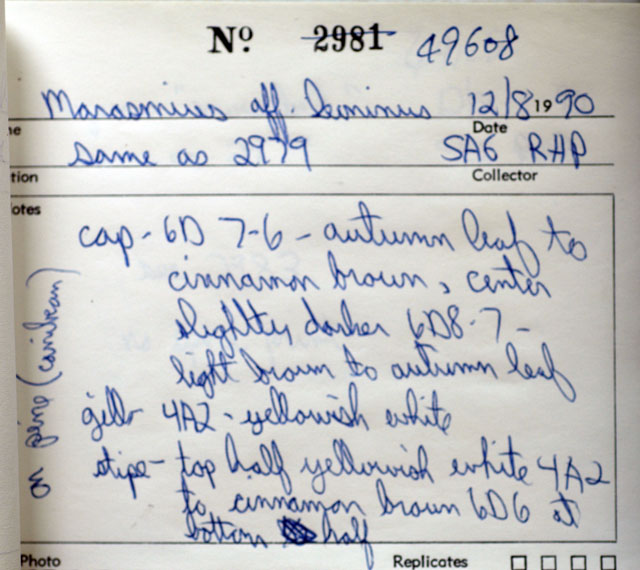 Nº 2981 49608
Marasmius aff. leoninus 12/8 1990
ne Date
same as 2979 SAG RHP
tion Collector
otes
cap - 6D 7-6 - autumn leaf to
cinnamon brown, center
slightly darker 6D8-7 -
light brown to autumn leaf
gills 4A2 - yellowish white
stipe - top half yellowish white 4A2
to cinnamon brown 6D6 at
bottom half
on pine (caribean)
Photo Replicates